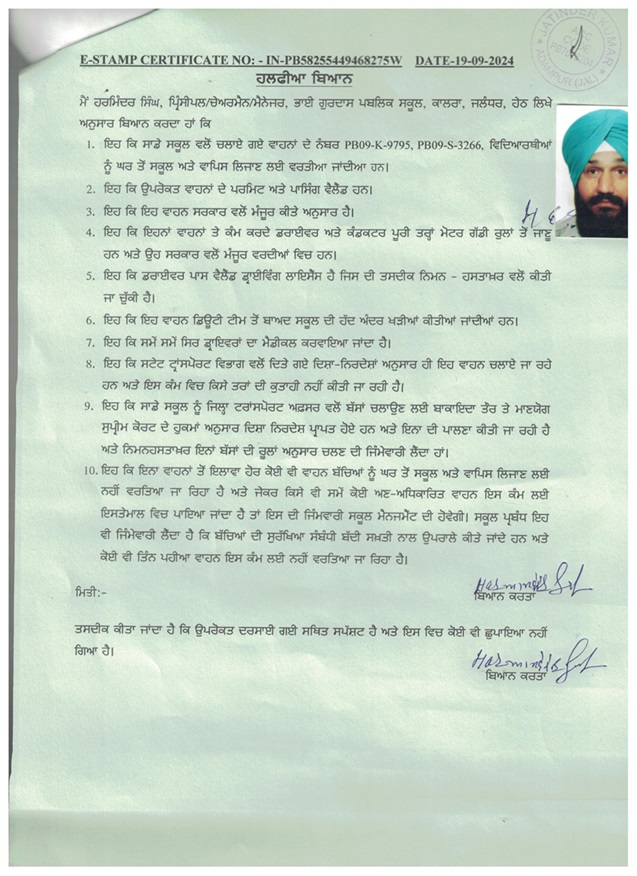 JATINDER KUMAR
ADAMPUR (JAL)
E-STAMP CERTIFICATE NO: - IN-PB58255449468275W DATE-19-09-2024
ਹਲਫੀਆ ਬਿਆਨ
ਮੈਂ ਹਰਮਿੰਦਰ ਸਿੰਘ, ਪ੍ਰਿੰਸੀਪਲ/ਚੇਅਰਮੈਨ/ਮੈਨੇਜਰ, ਭਾਈ ਗੁਰਦਾਸ ਪਬਲਿਕ ਸਕੂਲ, ਕਾਲਰਾ, ਜਲੰਧਰ, ਹੇਠ ਲਿਖੇ
ਅਨੁਸਾਰ ਬਿਆਨ ਕਰਦਾ ਹਾਂ ਕਿ
1. ਇਹ ਕਿ ਸਾਡੇ ਸਕੂਲ ਵਲੋਂ ਚਲਾਏ ਗਏ ਵਾਹਨਾਂ ਦੇ ਨੰਬਰ PB09-K-9795, PB09-S-3266, ਵਿਦਿਆਰਥੀਆਂ
ਨੂੰ ਘਰ ਤੋਂ ਸਕੂਲ ਅਤੇ ਵਾਪਿਸ ਲਿਜਾਣ ਲਈ ਵਰਤੀਆ ਜਾਂਦੀਆ ਹਨ।
2. ਇਹ ਕਿ ਉਪਰੋਕਤ ਵਾਹਨਾਂ ਦੇ ਪਰਮਿਟ ਅਤੇ ਪਾਸਿੰਗ ਵੈਲੈਡ ਹਨ।
3. ਇਹ ਕਿ ਇਹ ਵਾਹਨ ਸਰਕਾਰ ਵਲੋਂ ਮੰਜੂਰ ਕੀਤੇ ਅਨੁਸਾਰ ਹੈ।
4. ਇਹ ਕਿ ਇਹਨਾਂ ਵਾਹਨਾਂ ਤੇ ਕੰਮ ਕਰਦੇ ਡਰਾਈਵਰ ਅਤੇ ਕੰਡਕਟਰ ਪੂਰੀ ਤਰ੍ਹਾਂ ਮੋਟਰ ਗੱਡੀ ਰੁਲਾਂ ਤੋਂ ਜਾਣੂ
ਹਨ ਅਤੇ ਉਹ ਸਰਕਾਰ ਵਲੋਂ ਮੰਜੂਰ ਵਰਦੀਆਂ ਵਿਚ ਹਨ।
5. ਇਹ ਕਿ ਡਰਾਈਵਰ ਪਾਸ ਵੈਲੈਡ ਡ੍ਰਾਈਵਿੰਗ ਲਾਇਸੈਂਸ ਹੈ ਜਿਸ ਦੀ ਤਸਦੀਕ ਨਿਮਨ - ਹਸਤਾਖ਼ਰ ਵਲੋਂ ਕੀਤੀ
ਜਾ ਚੁੱਕੀ ਹੈ।
6. ਇਹ ਕਿ ਇਹ ਵਾਹਨ ਡਿਊਟੀ ਟੀਮ ਤੋਂ ਬਾਅਦ ਸਕੂਲ ਦੀ ਹੱਦ ਅੰਦਰ ਖੜੀਆਂ ਕੀਤੀਆਂ ਜਾਂਦੀਆਂ ਹਨ।
7. ਇਹ ਕਿ ਸਮੇਂ ਸਮੇਂ ਸਿਰ ਡ੍ਰਾਇਵਰਾਂ ਦਾ ਮੈਡੀਕਲ ਕਰਵਾਇਆ ਜਾਂਦਾ ਹੈ।
8. ਇਹ ਕਿ ਸਟੇਟ ਟ੍ਰਾਂਸਪੋਰਟ ਵਿਭਾਗ ਵਲੋਂ ਦਿਤੇ ਗਏ ਦਿਸ਼ਾ-ਨਿਰਦੇਸ਼ਾਂ ਅਨੁਸਾਰ ਹੀ ਇਹ ਵਾਹਨ ਚਲਾਏ ਜਾ ਰਹੇ
ਹਨ ਅਤੇ ਇਸ ਕੰਮ ਵਿਚ ਕਿਸੇ ਤਰਾਂ ਦੀ ਕੁਤਾਹੀ ਨਹੀਂ ਕੀਤੀ ਜਾ ਰਹੀ ਹੈ।
9. ਇਹ ਕਿ ਸਾਡੇ ਸਕੂਲ ਨੂੰ ਜਿਲ੍ਹਾ ਟਰਾਂਸਪੋਰਟ ਅਫ਼ਸਰ ਵਲੋਂ ਬੱਸਾਂ ਚਲਾਉਣ ਲਈ ਬਾਕਾਇਦਾ ਤੌਰ ਤੇ ਮਾਣਯੋਗ
ਸੁਪ੍ਰੀਮ ਕੋਰਟ ਦੇ ਹੁਕਮਾਂ ਅਨੁਸਾਰ ਦਿਸ਼ਾ ਨਿਰਦੇਸ਼ ਪ੍ਰਾਪਤ ਹੋਏ ਹਨ ਅਤੇ ਇਨਾ ਦੀ ਪਾਲਣਾ ਕੀਤੀ ਜਾ ਰਹੀ ਹੈ
ਅਤੇ ਨਿਮਨਹਸਤਾਖ਼ਰ ਇਨਾਂ ਬੱਸਾਂ ਦੀ ਰੂਲਾਂ ਅਨੁਸਾਰ ਚਲਣ ਦੀ ਜਿੰਮੇਵਾਰੀ ਲੈਂਦਾ ਹਾਂ।
10. ਇਹ ਕਿ ਇਨਾ ਵਾਹਨਾਂ ਤੋਂ ਇਲਾਵਾ ਹੋਰ ਕੋਈ ਵੀ ਵਾਹਨ ਬੱਚਿਆਂ ਨੂੰ ਘਰ ਤੋਂ ਸਕੂਲ ਅਤੇ ਵਾਪਿਸ ਲਿਜਾਣ ਲਈ
ਨਹੀਂ ਵਰਤਿਆ ਜਾ ਰਿਹਾ ਹੈ ਅਤੇ ਜੇਕਰ ਕਿਸੇ ਵੀ ਸਮੇਂ ਕੋਈ ਅਣ-ਅਧਿਕਾਰਿਤ ਵਾਹਨ ਇਸ ਕੰਮ ਲਈ
ਇਸਤੇਮਾਲ ਵਿਚ ਪਾਇਆ ਜਾਂਦਾ ਹੈ ਤਾਂ ਇਸ ਦੀ ਜਿੰਮਵਾਰੀ ਸਕੂਲ ਮੈਨਜਮੈਂਟ ਦੀ ਹੋਵੇਗੀ। ਸਕੂਲ ਪ੍ਰਬੰਧ ਇਹ
ਵੀ ਜਿੰਮੇਵਾਰੀ ਲੈਂਦਾ ਹੈ ਕਿ ਬੱਚਿਆਂ ਦੀ ਸੁਰੱਖਿਆ ਸੰਬੰਧੀ ਬੱਦੀ ਸਖ਼ਤੀ ਨਾਲ ਉਪਰਾਲੇ ਕੀਤੇ ਜਾਂਦੇ ਹਨ ਅਤੇ
ਕੋਈ ਵੀ ਤਿੰਨ ਪਹੀਆ ਵਾਹਨ ਇਸ ਕੰਮ ਲਈ ਨਹੀਂ ਵਰਤਿਆ ਜਾ ਰਿਹਾ ਹੈ।
ਮਿਤੀ:-
ਬਿਆਨ ਕਰਤਾ
ਤਸਦੀਕ ਕੀਤਾ ਜਾਂਦਾ ਹੈ ਕਿ ਉਪਰੋਕਤ ਦਰਸਾਈ ਗਈ ਸਥਿਤ ਸਪੱਸ਼ਟ ਹੈ ਅਤੇ ਇਸ ਵਿਚ ਕੋਈ ਵੀ ਛੁਪਾਇਆ ਨਹੀਂ
ਗਿਆ ਹੈ।
ਬਿਆਨ ਕਰਤਾ